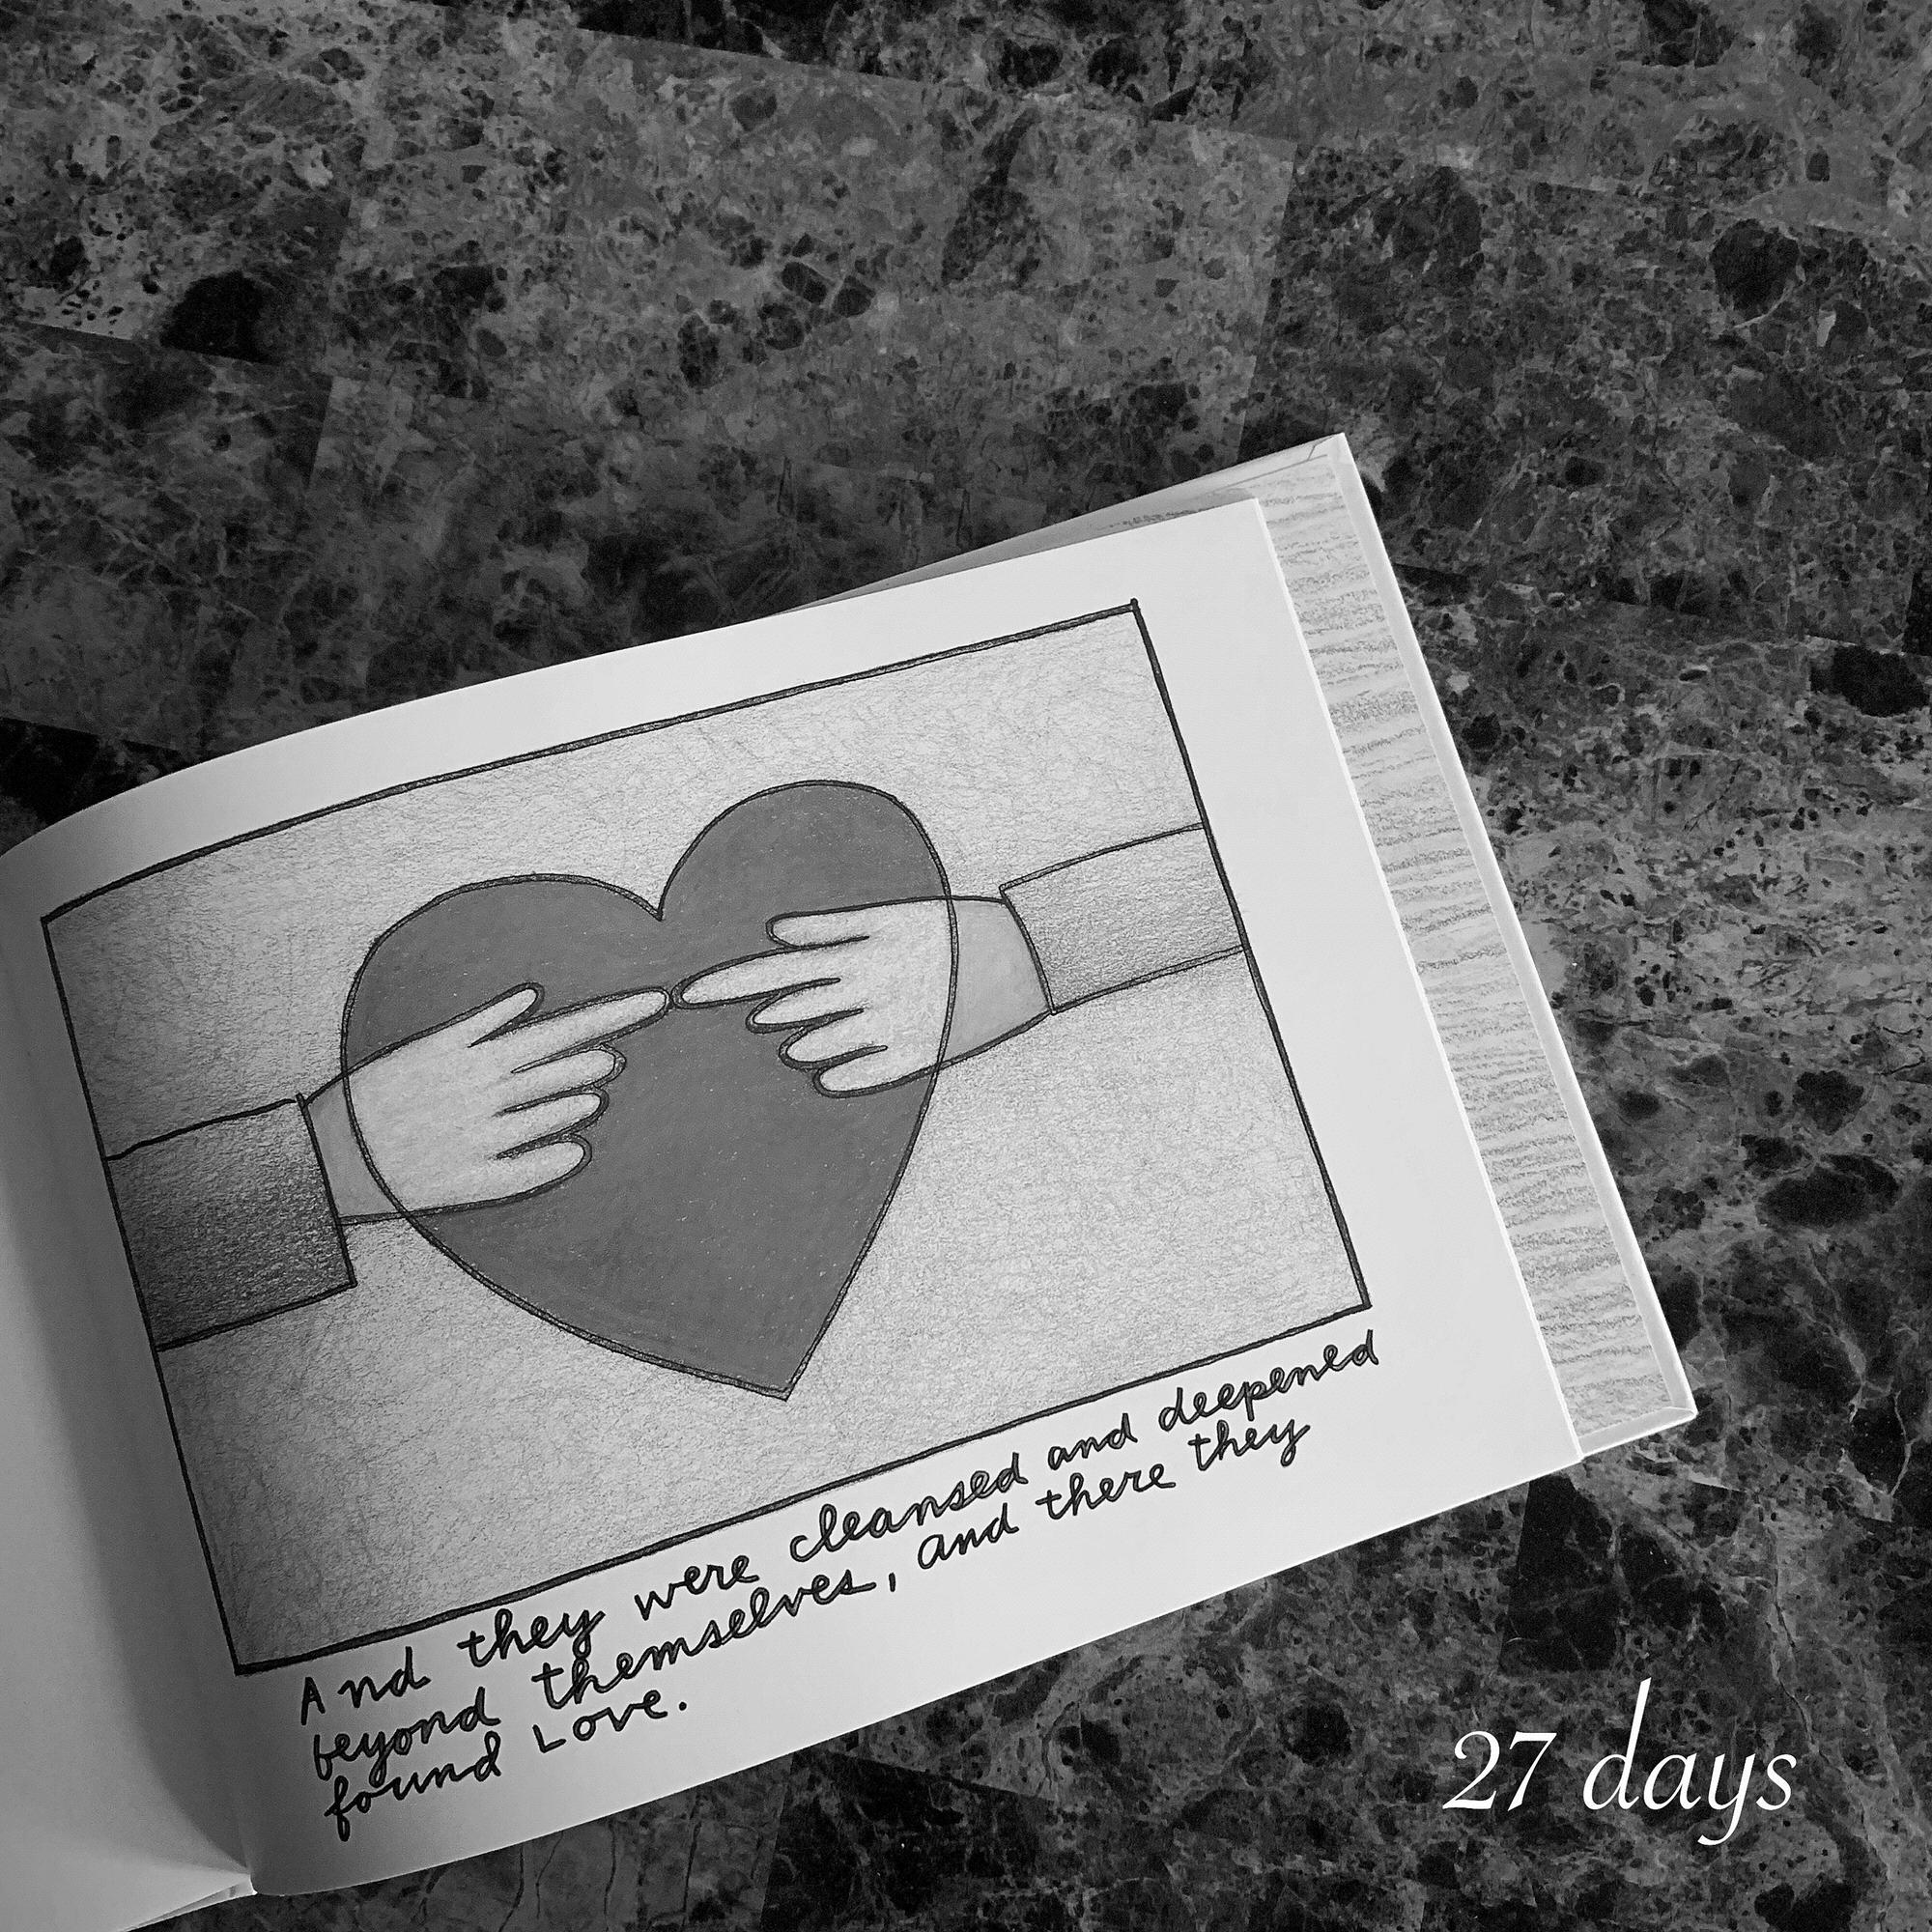 And they were cleansed and deepened
beyond themselves, and there they
found Love.
27 days